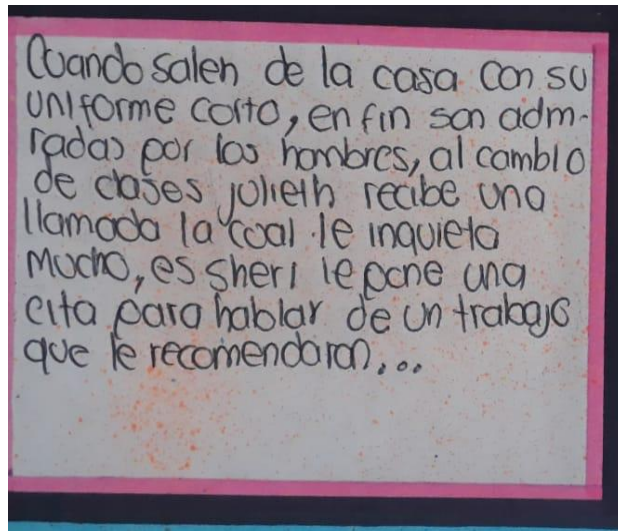 Cuando salen de la casa con su
uniforme corto, en fin son admi-
radas por los hombres, al cambio
de clases julieth recibe una
llamada la cual le inquieta
mucho, es sheri le pone una
cita para hablar de un trabajo
que le recomendaron...